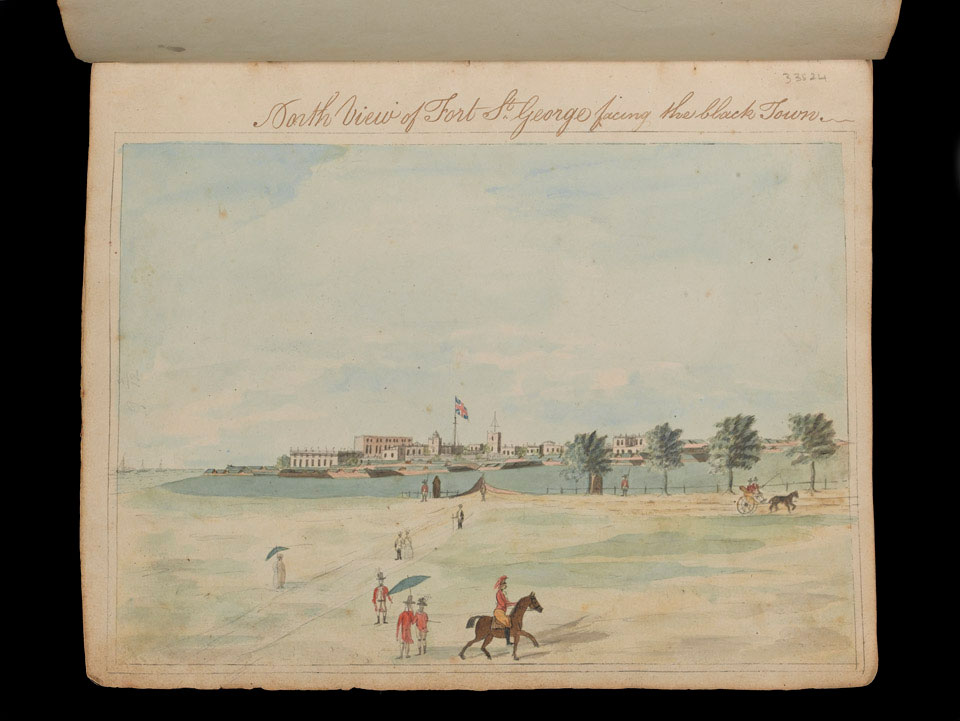 33524
North View of Fort St. George facing the black Town.